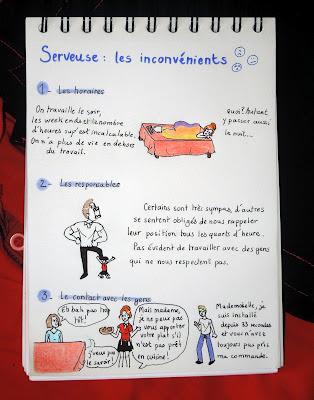 Serveuse : les inconvénients
1 - Les horaires
On travaille le soir,
les week ends et le nombre
d'heures sup' est incalculable.
On n'a plus de vie en dehors
du travail.
quoi? Autant
y passer aussi
la nuit...
2 - Les responsables
Certains sont très sympas, d'autres
se sentent obligés de nous rappeler
leur position tous les quarts d'heure.
Pas évident de travailler avec des gens
qui ne nous respectent pas.
3 - Le contact avec les gens
Eh bah pas trop
tôt!
j'veux pas
le savoir!
Mais madame,
je ne peux pas
vous apporter
votre plat s'il
n'est pas prêt
en cuisine!
Mademoiselle, je
suis installé
depuis 33 secondes
et vous n'avez
toujours pas pris
ma commande.